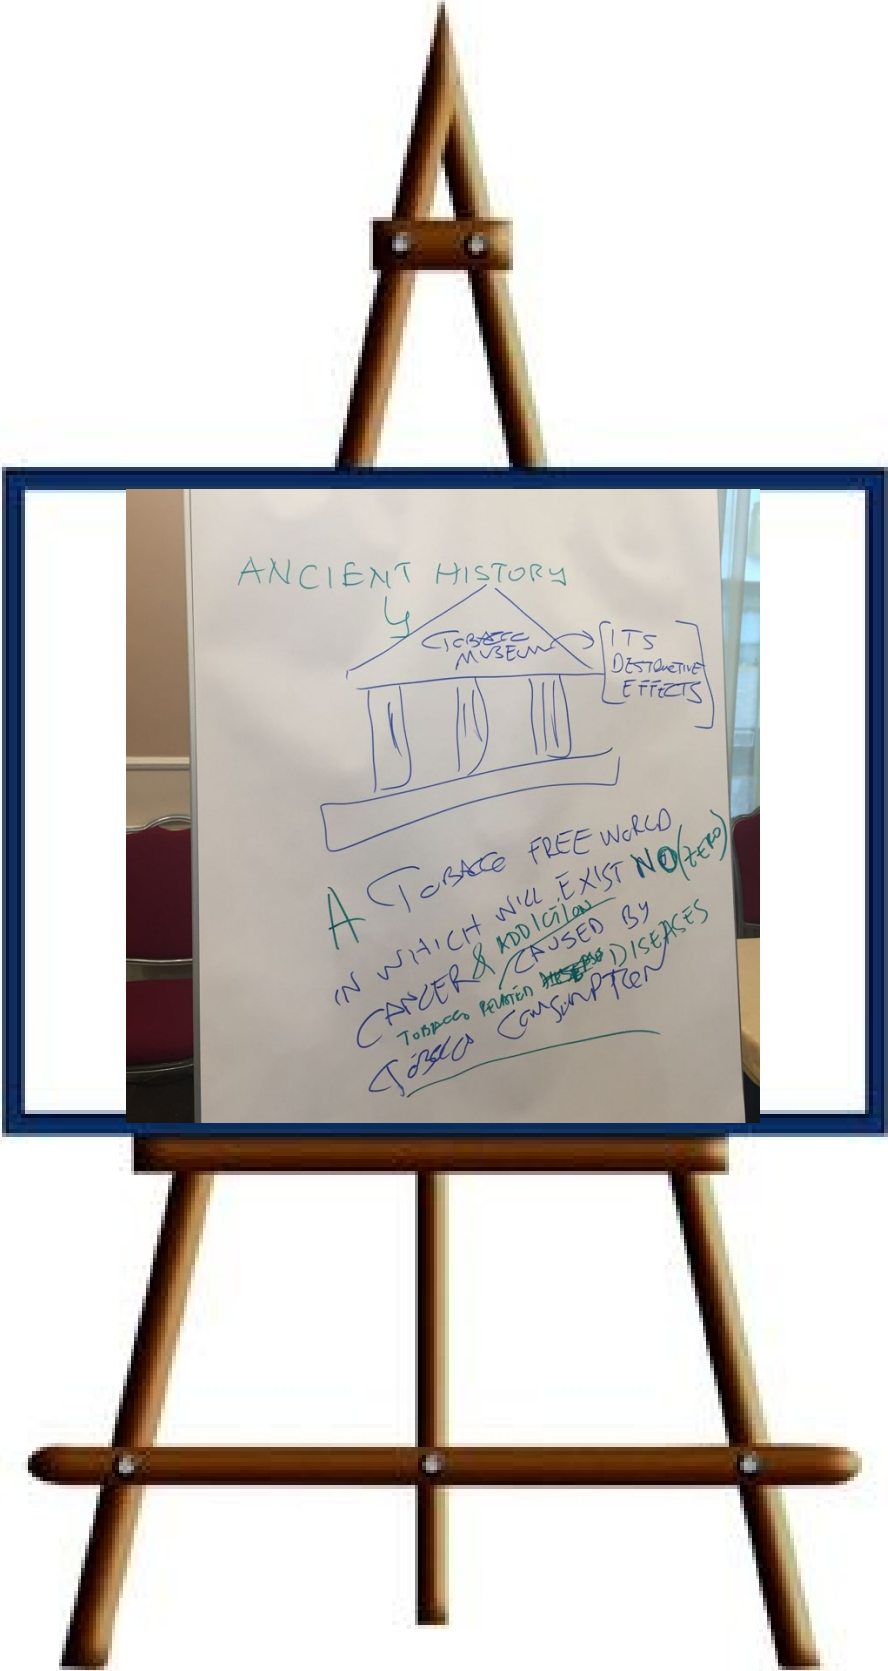 ANCIENT HISTORY
TOBACCO
MUSEUM
ITS
DESTRUCTIVE
EFFECTS
A TOBACCO FREE WORLD
IN WHICH WILL EXIST NO (ZERO)
CANCER & ADDICTION CAUSED BY
TOBACCO RELATED DISEASES
TOBACCO CONSUMPTION